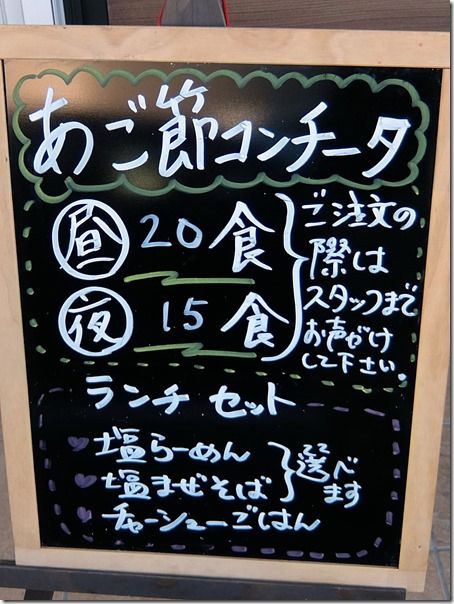 あご節コンチータ
昼 20食
夜 15食
ご注文の
際は
スタッフまで
お声がけ
して下さい。
ランチ セット
塩らーめん
塩まぜそば
選べ
ます
チャーシューごはん